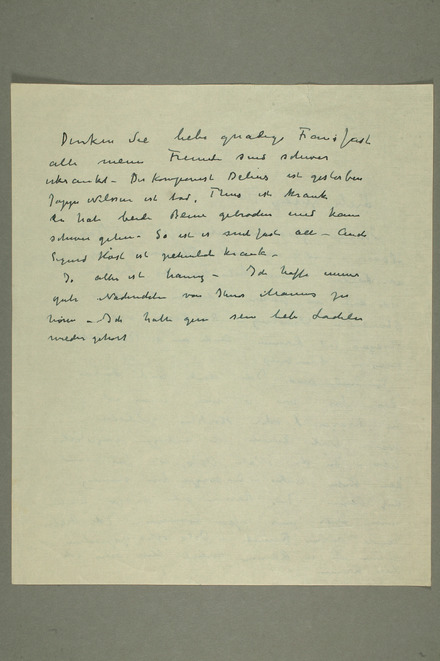 Denken Sie liebe gnädige Frau fast
alle meine Freunde sind schwer
erkrankt – Der Komponist Delius ist gestorben
Jappe Nilssen ist tod. Thiis ist krank
Er hat beide Beine gebrochen und kann
schwer gehen – So ist es fast all – Auch
Sigurd Höst ist krank –
Ja alles ist traurig – Ich hoffe immer
gute Nachrichten von Ihres Mannes zu
hören – Ich hatte gern sein liebe Lachen
wieder gehört